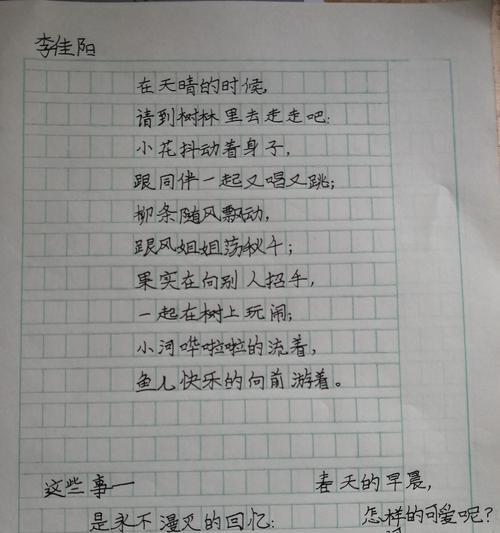 李佳阳
在天晴的时候,
请到树林里去走走吧:
小花抖动着身子,
跟同伴一起又唱又跳;
柳条随风飘动,
跟风姐姐荡秋千;
果实在向别人招手,
一起在树上玩闹;
小河哗啦啦的流着,
鱼儿快乐的向前游着。
这些事一
是永不漫灭的回忆:
春天的早晨,
怎样的可爱呢?